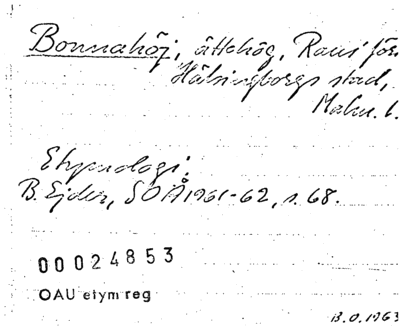 Bonnahöj, ättehög, Raus förs.
Hälsingborgs stad,
Malm. l.
Etymologi.
B. Ejder, SOÅ 1961-62, s. 68.
00024853
OAU etym reg
B.O. 1963